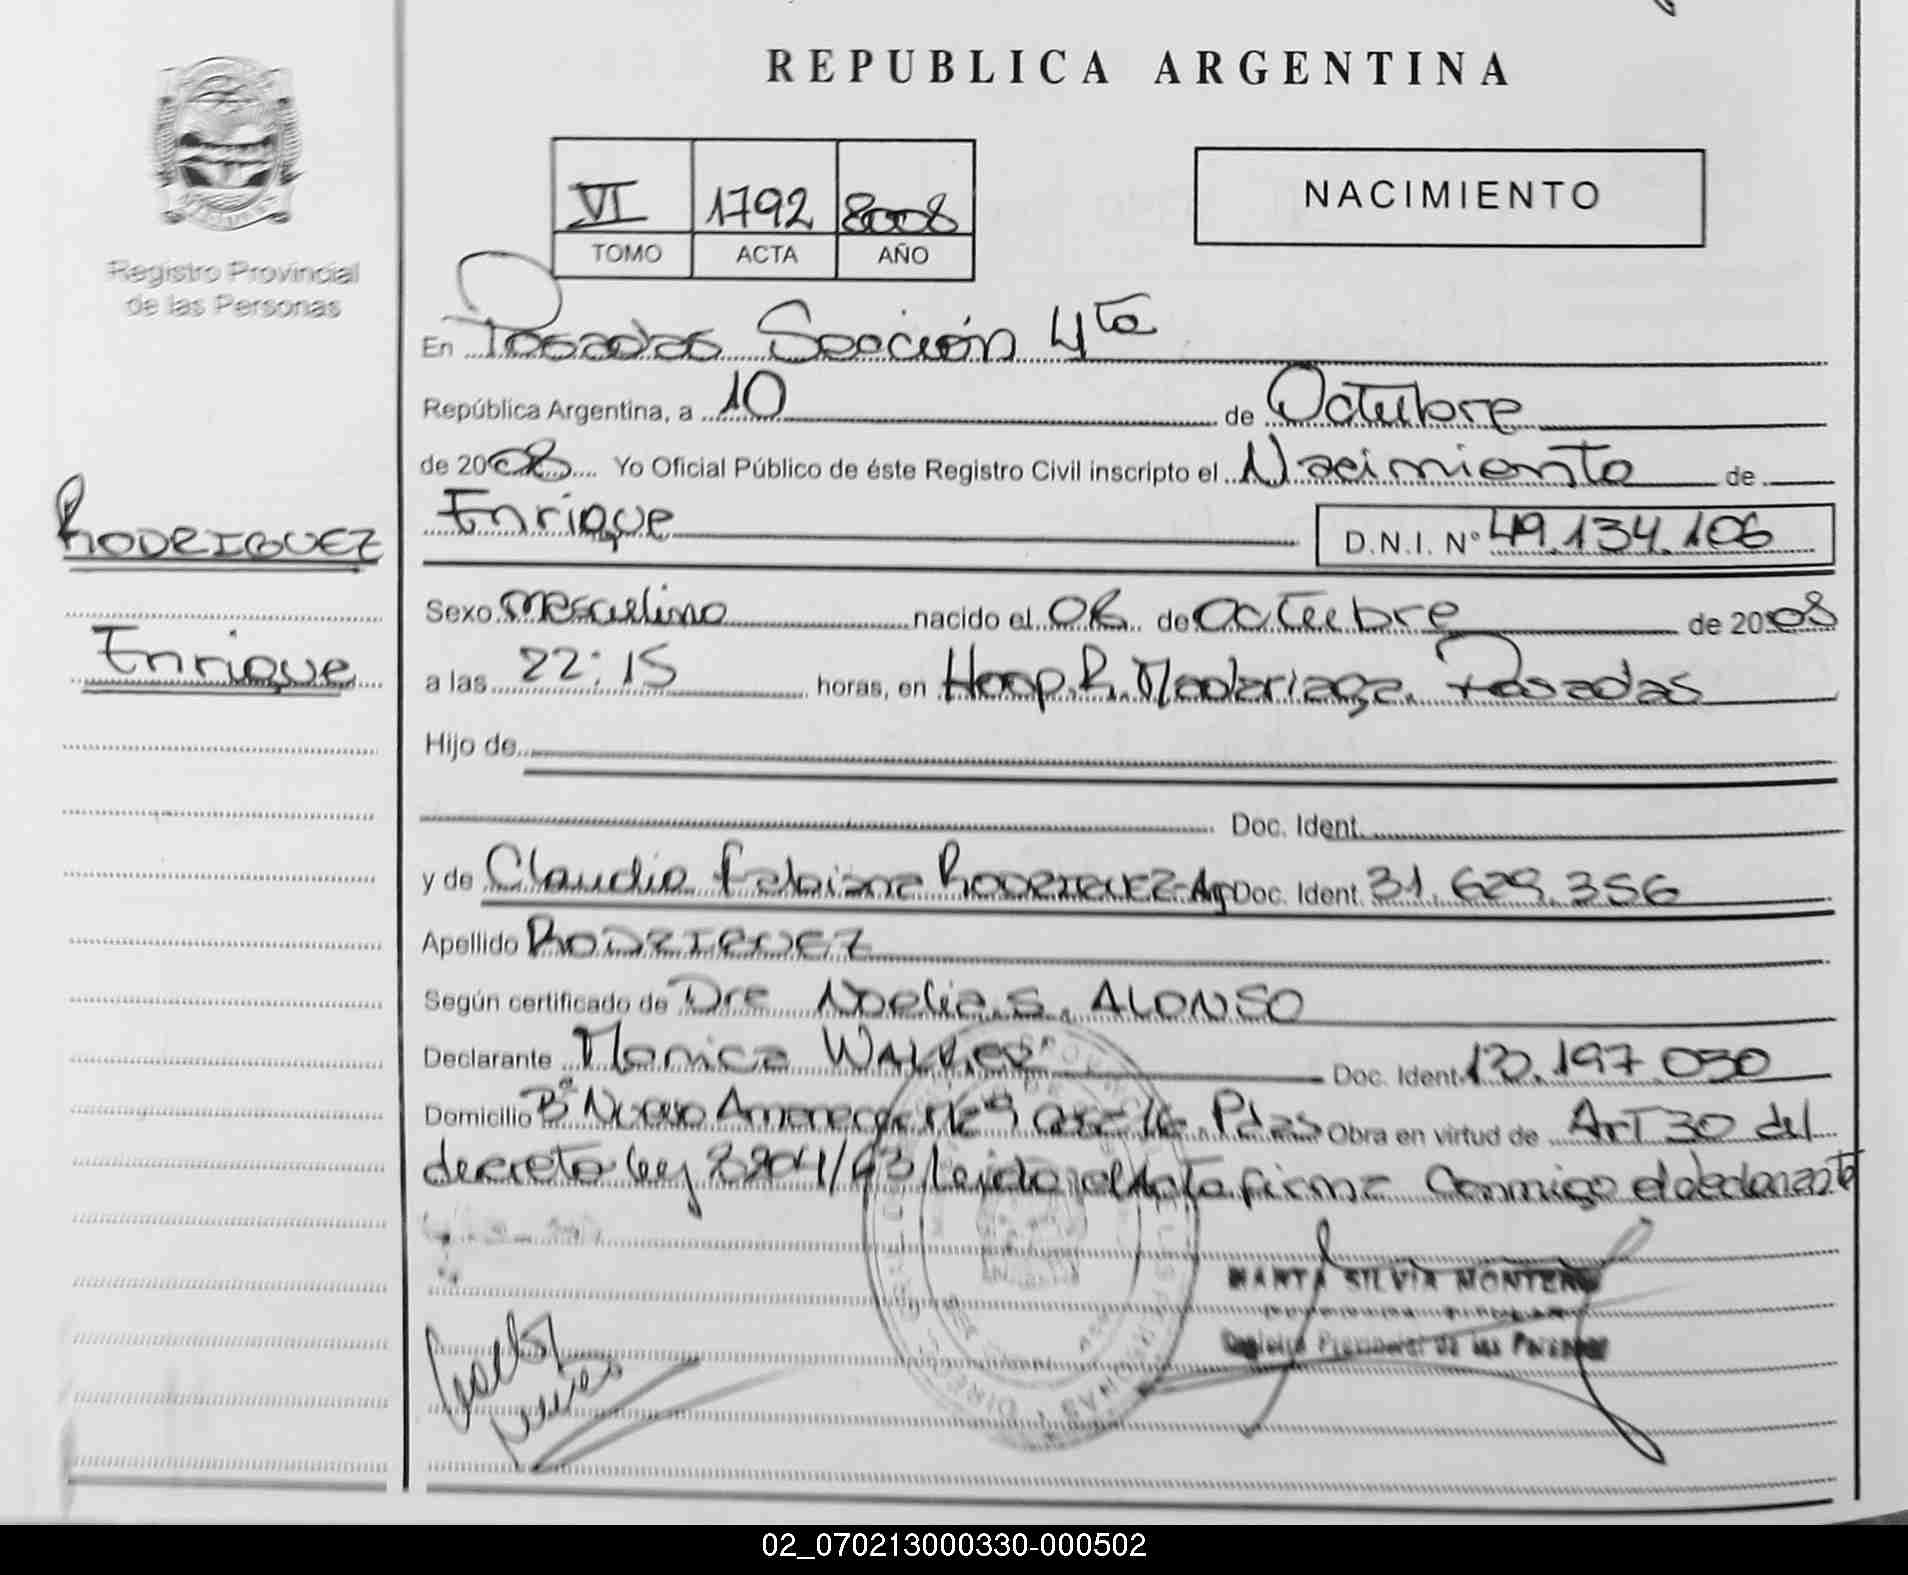 REPUBLICA ARGENTINA
VI 1792 2008
TOMO ACTA AÑO
NACIMIENTO
Registro Provincial
de las Personas
RODRIGUEZ
Enrique
En Posadas Sección 4ta
República Argentina, a 10 de Octubre
de 2008 Yo Oficial Público de éste Registro Civil inscripto el Nacimiento de
Enrique D.N.I. N° 49.134.106
Sexo masculino nacido el 06 de Octubre de 2008
a las 22:15 horas, en Hosp. R. Madariaga. Posadas
Hijo de
Doc. Ident.
y de Claudia Fabiana RODRIGUEZ-Arg Doc. Ident. 31.629.356
Apellido RODRIGUEZ
Según certificado de Dra Noelia S. ALONSO
Declarante Monica Doc. Ident. 13.197.050
Domicilio B° Nuevo Pdas Obra en virtud de Art 30 del
decreto ley 8204/63 Leida el Acta firma Conmigo el declarante
MARTA SILVIA MONTERO
Registro Provincial de las Personas
02_070213000330-000502